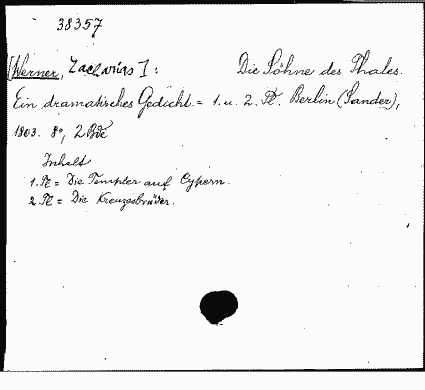 38357
[Werner, Zacharias]: Die Söhne des Thales.
Ein dramatisches Gedicht. = 1. u. 2. Tl. Berlin (Sander),
1803. 8°, 2 Bde
Inhalt
1. Tl = Die Templer auf Cypern.
2. Tl = Die Kreuzesbrüder.